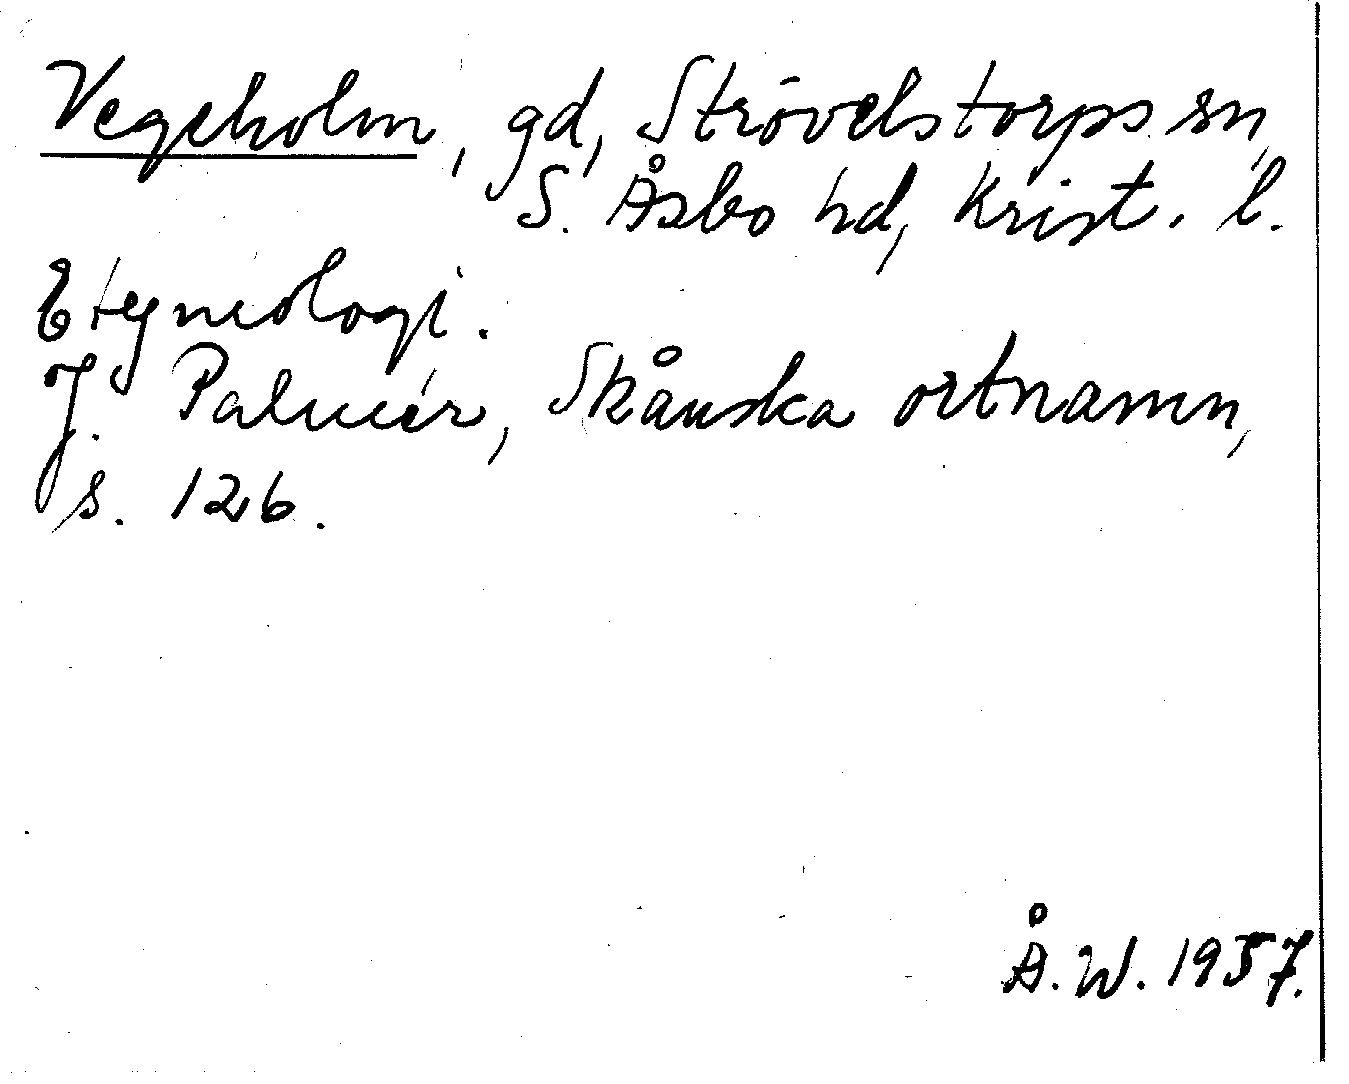 Vegeholm, gd, Strövelstorps sn,
S. Åsbo hd, Krist. l.
Etymologi.
J. Palmér, Skånska ortnamn,
s. 126.
Å. W. 1957.